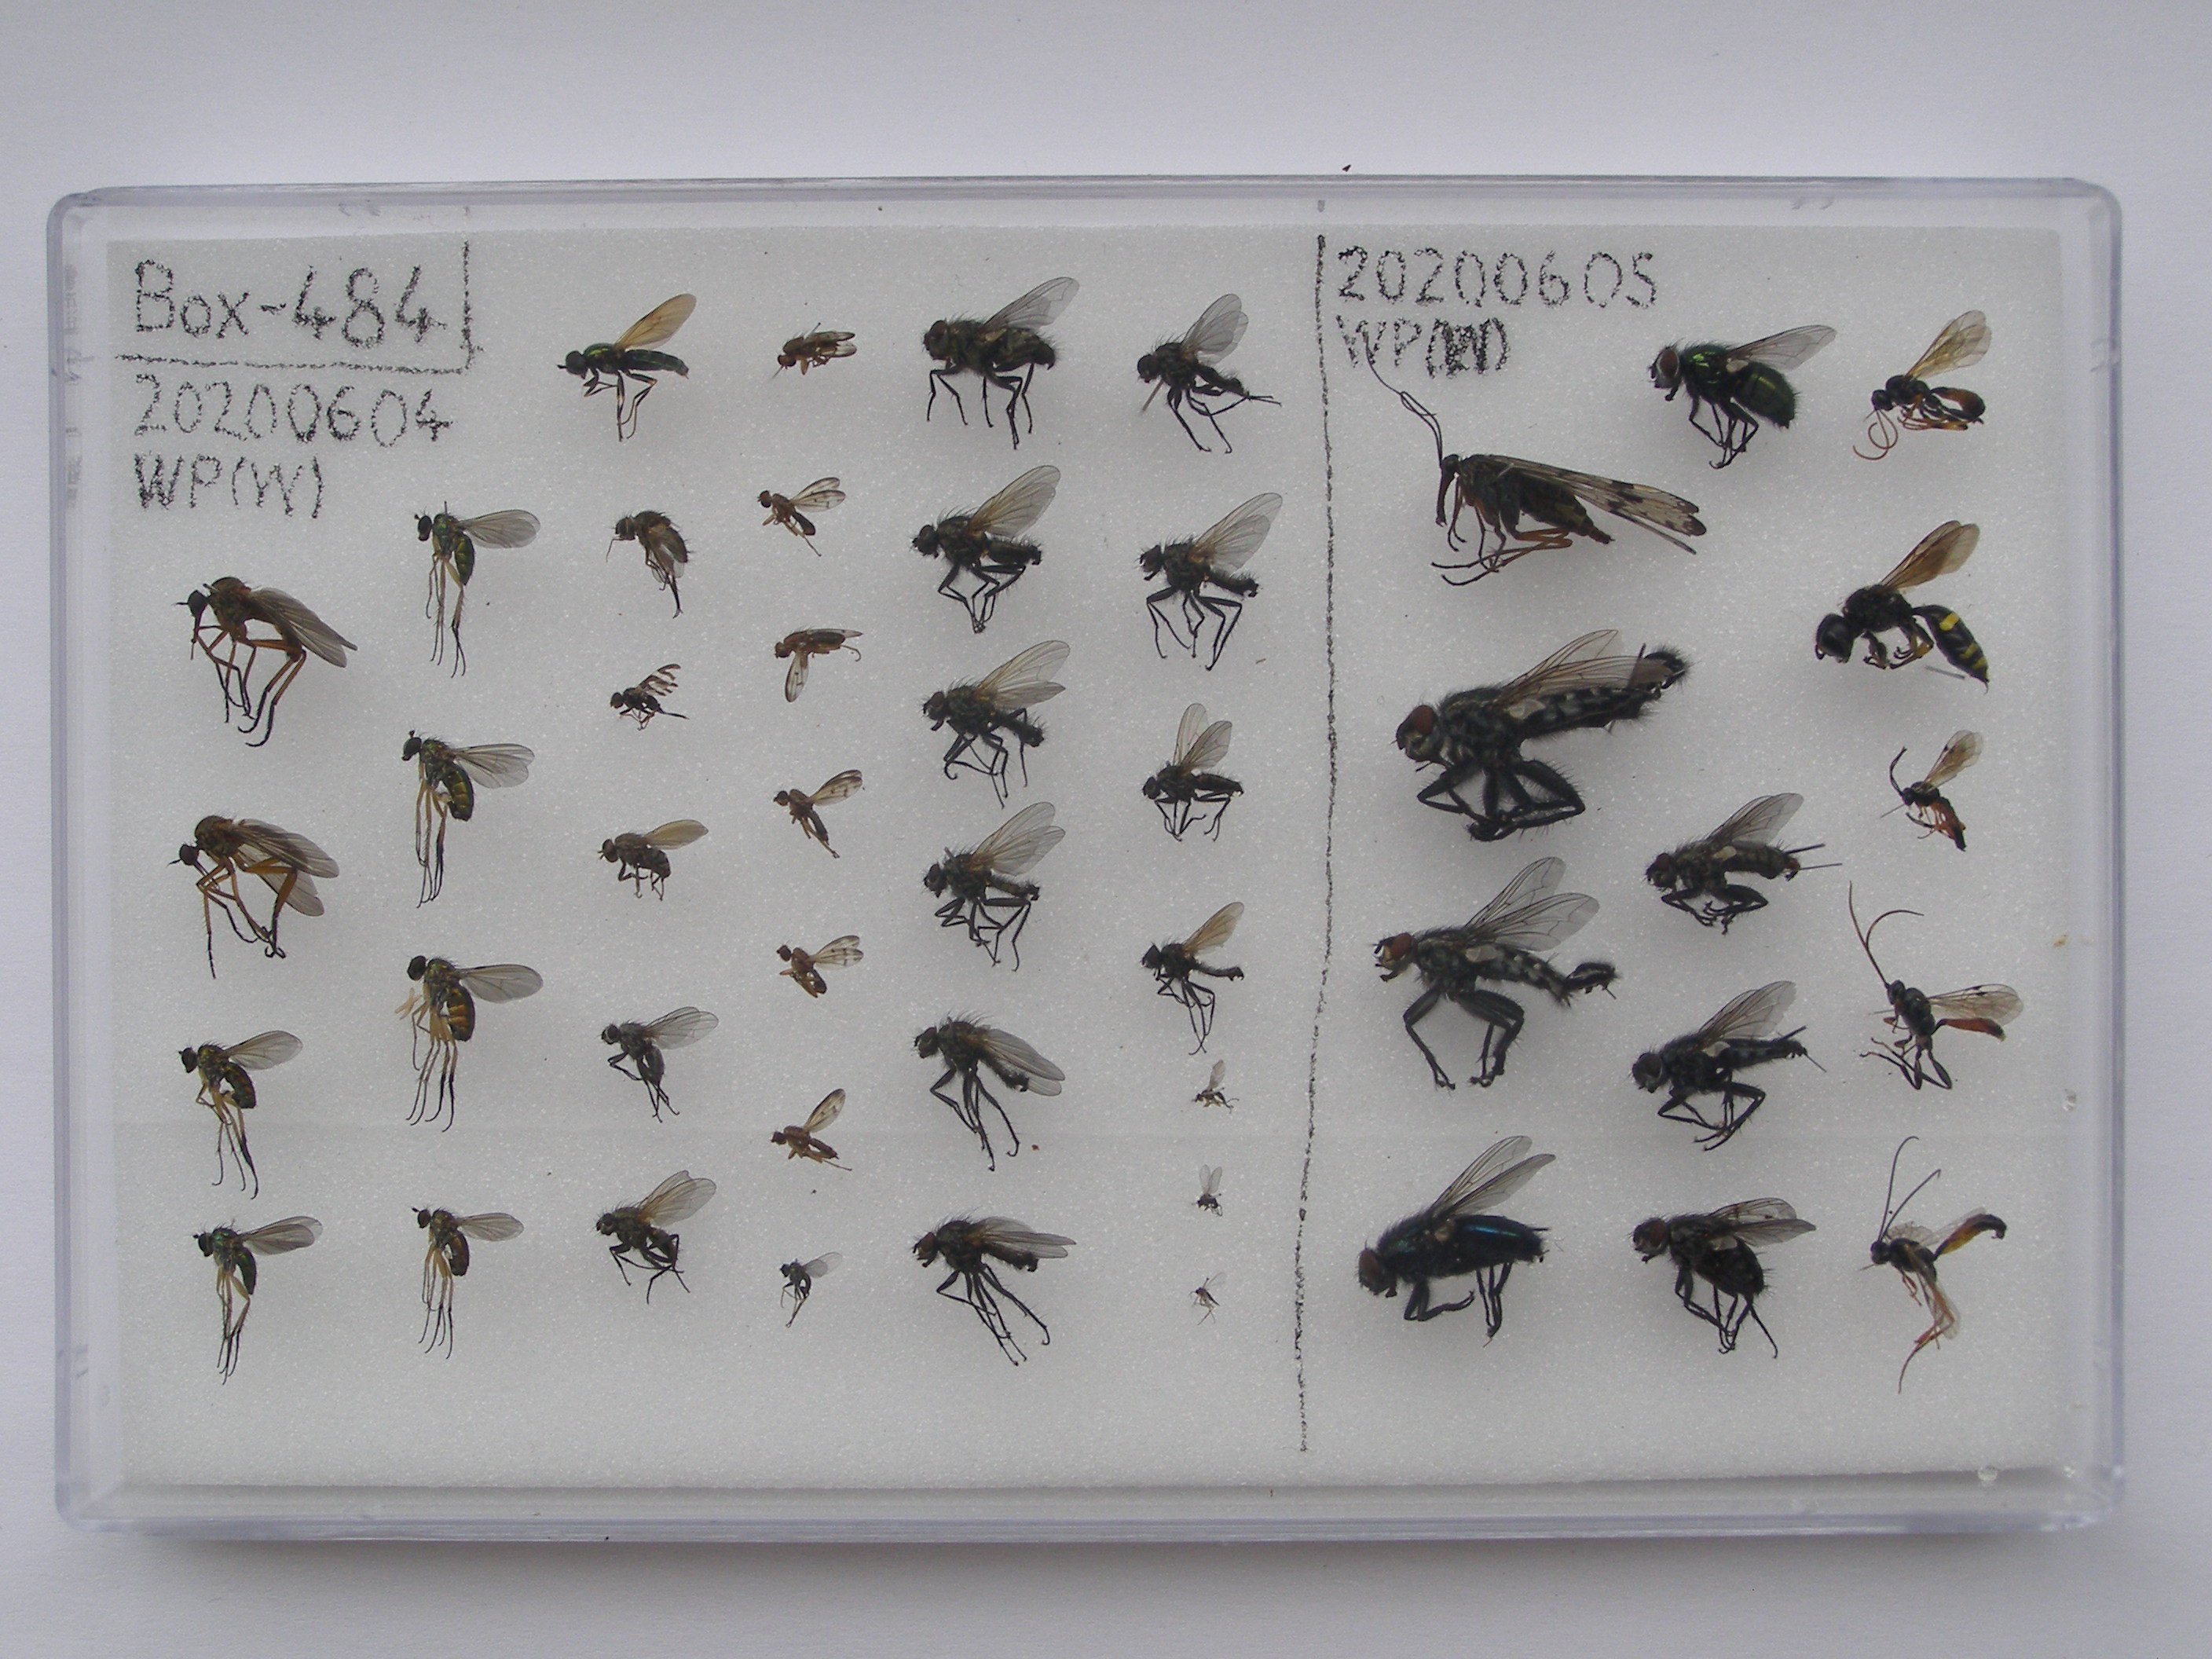 Box-484
20200604
WP(W)
20200605
WP(W)